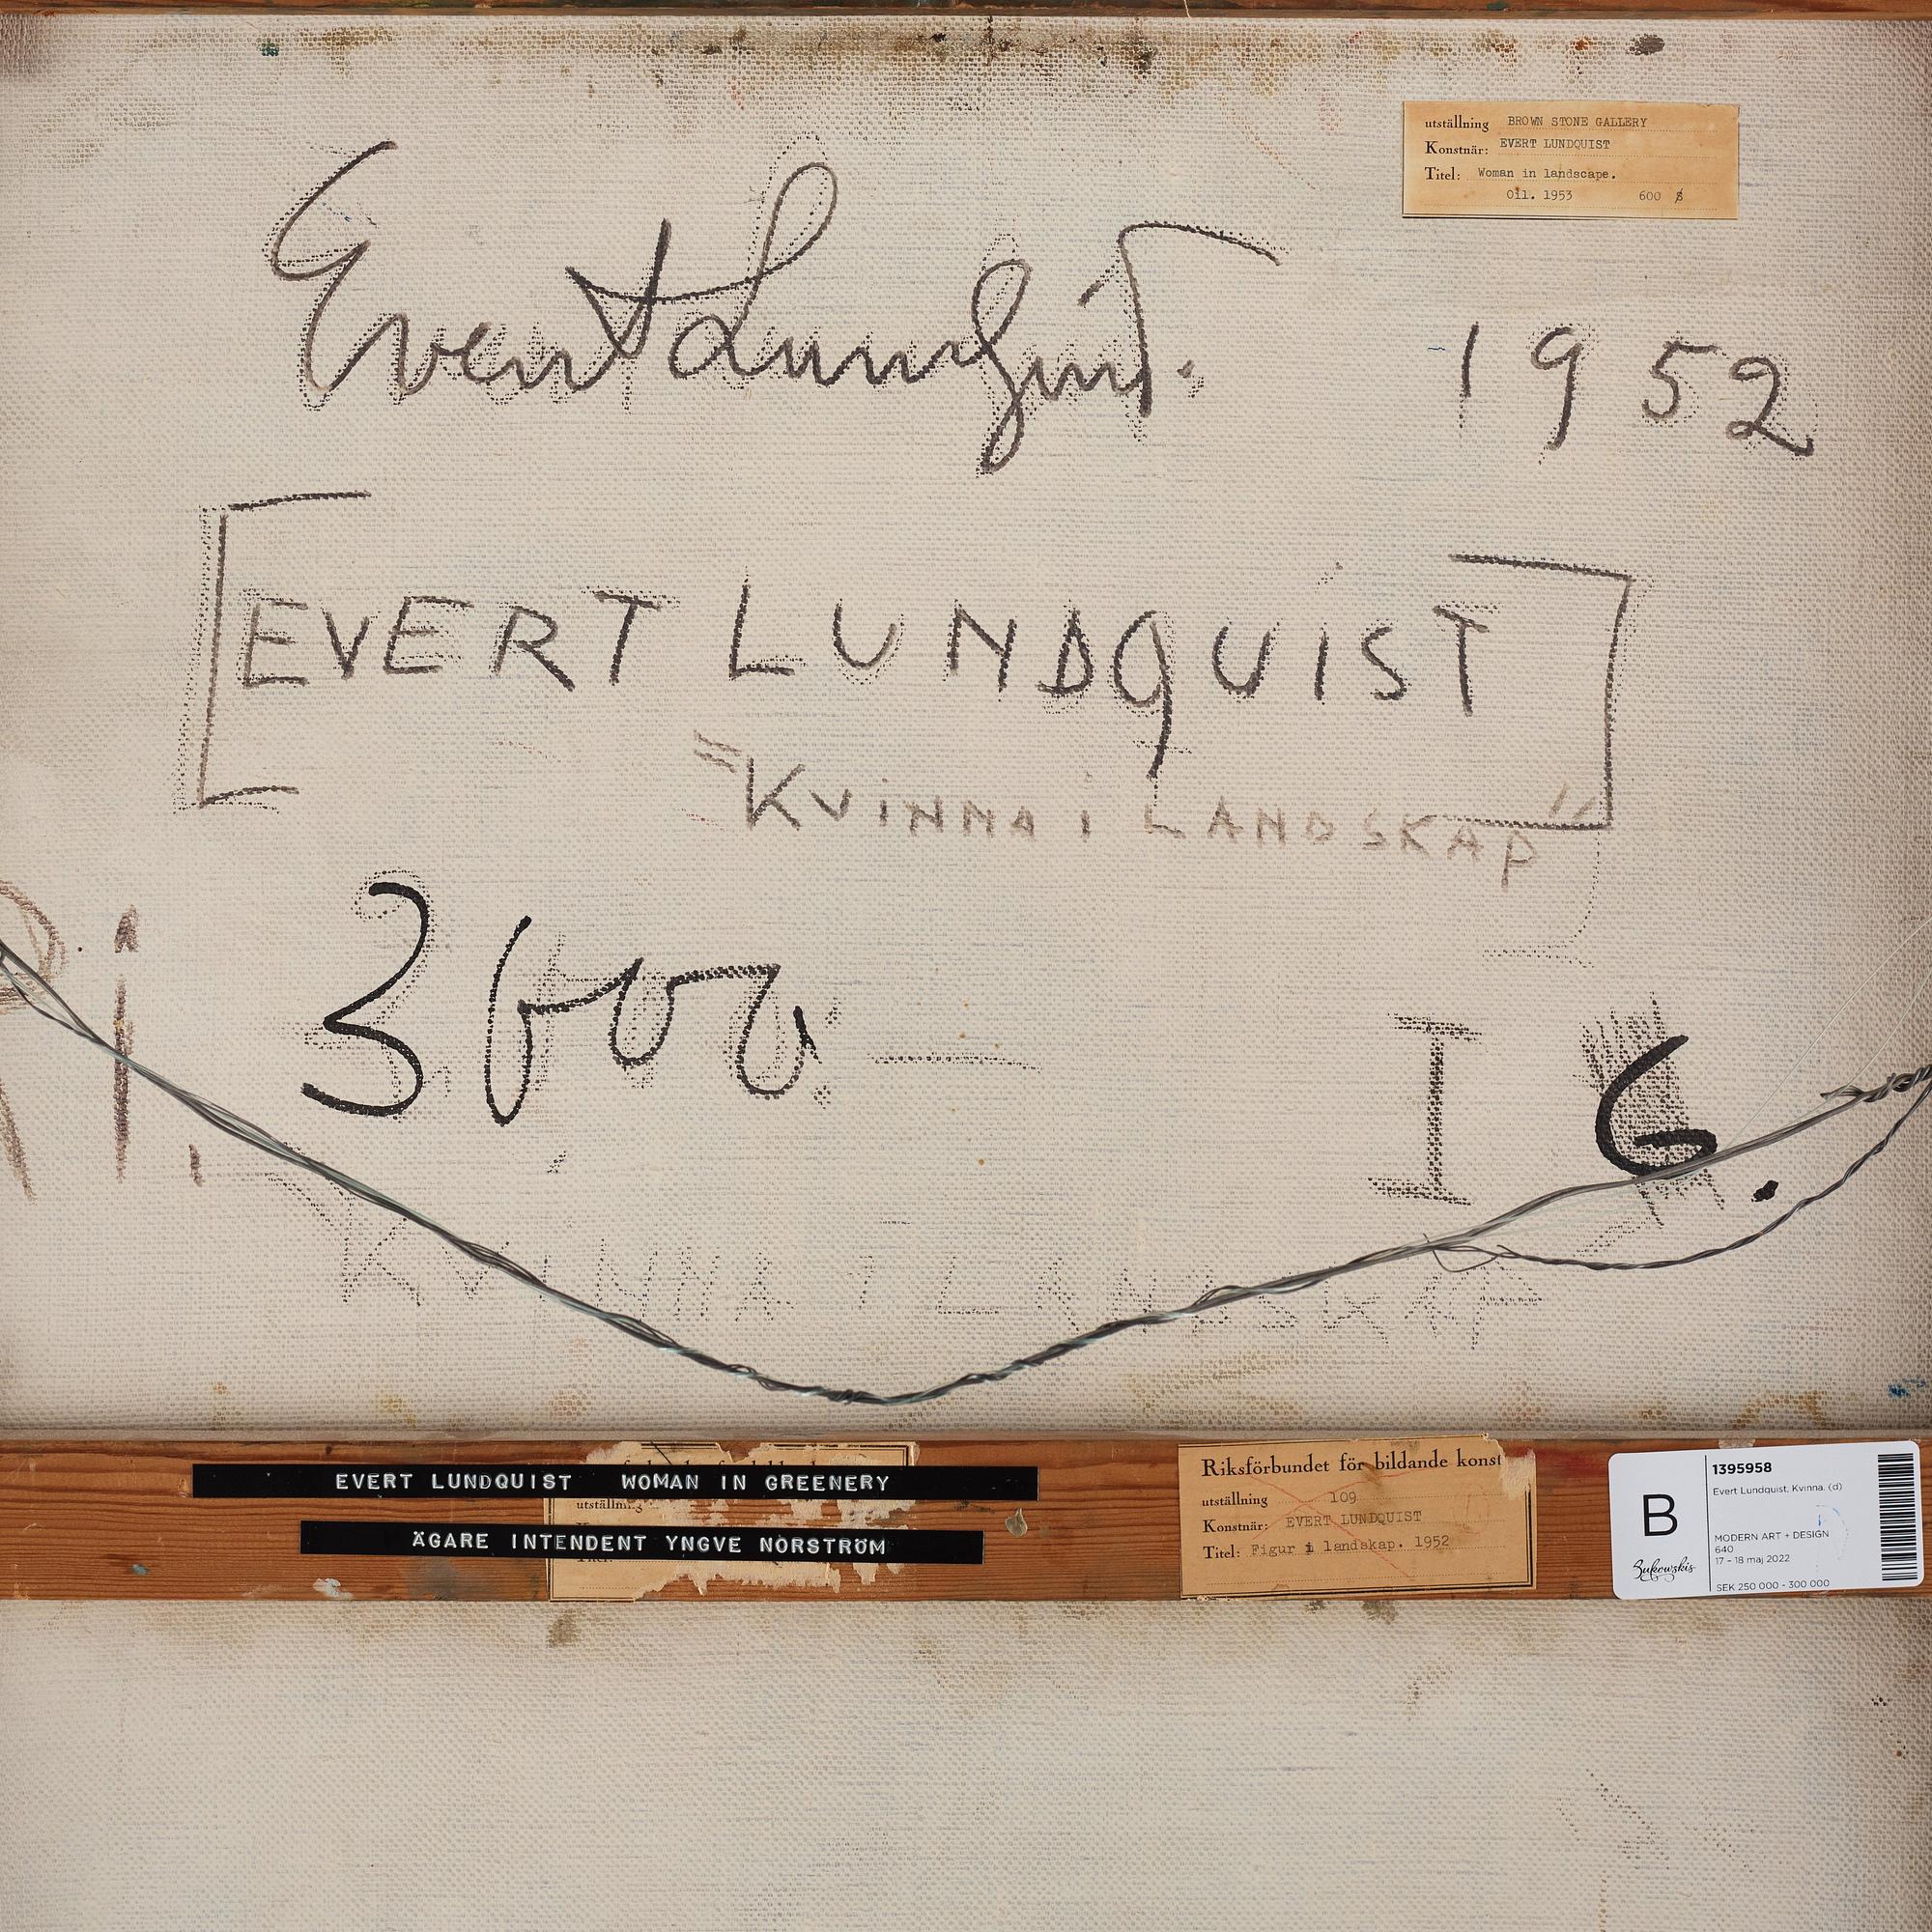 utställning BROWN STONE GALLERY
Konstnär: EVERT LUNDQUIST
Titel: Woman in landscape.
Oil. 1953 600 $
Evert Lundquist. 1952
EVERT LUNDQUIST
"KVINNA i LANDSKAP"
Ri, 3600.— I 6.
KVINNA I LANDSKAP
EVERT LUNDQUIST WOMAN IN GREENERY
utställning
ÄGARE INTENDENT YNGVE NORSTRÖM
Titel:
Riksförbundet för bildande konst
utställning 109
Konstnär: EVERT LUNDQUIST
Titel: Figur i landskap. 1952
B
Bukowskis
1395958
Evert Lundquist, Kvinna. (d)
MODERN ART + DESIGN
640
17 – 18 maj 2022
SEK 250 000 - 300 000